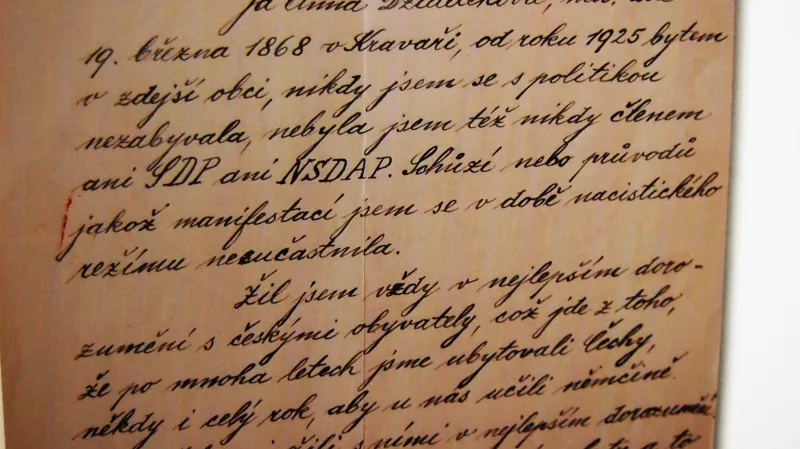 Já Anna
19. března 1868 v Kravaři, od roku 1925 bytem
v zdejší obci, nikdy jsem se s politikou
nezabyvala, nebyla jsem též nikdy členem
ani SDP ani NSDAP. Schůzí nebo průvodů
jakož manifestací jsem se v době nacistického
režímu nesučastnila.
Žil jsem vždy v nejlepším doro-
zumění s českými obyvately, což jde z toho,
že po mnoha letech jsme ubytovali Čechy,
někdy i celý rok, aby u nás učili němčině.
žili s nimi v nejlepším dorozumění
a to